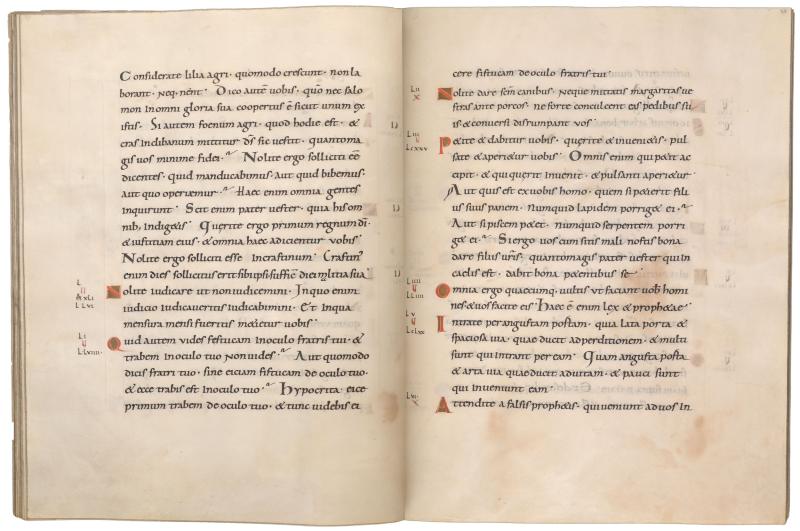 Considerate lilia agri · quomodo crescunt · non la
borant · Neq; nent · Dico autē uobis · quō nec salo
mon in omni gloria sua coopertus ē sicut unum ex
istis · Si autem foenum agri · quod hodie est · &
cras in clibanum mittitur dš sic uestit · quantoma
gis uos minime fidei · Nolite ergo solliciti eē
dicentes · quid manducabimus · aut quid bibemus ·
aut quo operiemur · Haec enim omnia gentes
inquirunt · Scit enim pater uester · quia his om
nib; indigetis · Querite ergo primum regnum dī ·
& iustitiam eius · & omnia haec adicientur uobis
Nolite ergo solliciti esse in crastinum · Crastin'
enim dies sollicitus erit sibi ipsi · sufficit diei malitia sua
Nolite iudicare ut non iudicemini · In quo enim
iudicio iudicaueritis iudicabimini · Et in qua
mensura mensi fueritis metietur uobis
LI
Quid autem uides festucam in oculo fratris tui · &
trabem in oculo tuo non uides · Aut quomodo
dicis fratri tuo · sine eiciam fistucam de oculo tuo ·
& ecce trabis est in oculo tuo · Hypocrita · eice
primum trabem de oculo tuo · & tunc uidebis ei
cere fistucam de oculo fratris tui
LII
X
Nolite dare scm canibus · Neque mittatis margaritas ue
stras ante porcos · ne forte conculcent eas pedibus su
is & conuersi disrumpant uos
LIII
Petite & dabitur uobis · querite & inuenietis · pul
sate & aperietur uobis · Omnis enim qui petit ac
cipit · & qui querit inuenit · & pulsanti aperietur
Aut quis est ex uobis homo · quem si petierit fili
us suus panem · Numquid lapidem porriget ei ·
Aut si piscem petet · numquid serpentem porri
get ei · Si ergo uos cum sitis mali nostis bona
dare filiis urīs · quantomagis pater uester qui in
caelis est · dabit bona petentibus se
LIIII
Omnia ergo quaecumq; uultis ut faciant uob homi
nes & uos facite eis · Haec ē enim lex & prophetae
LV
Intrate per angustam portam · quia lata porta &
spaciosa uia · quae ducit ad perditionem · & multi
sunt qui intrant per eam · Quam angusta porta
& arta uia quae ducit ad uitam · & pauci sunt
qui inueniunt eam
LVI
X
Attendite a falsis prophetis · qui ueniunt ad uos in